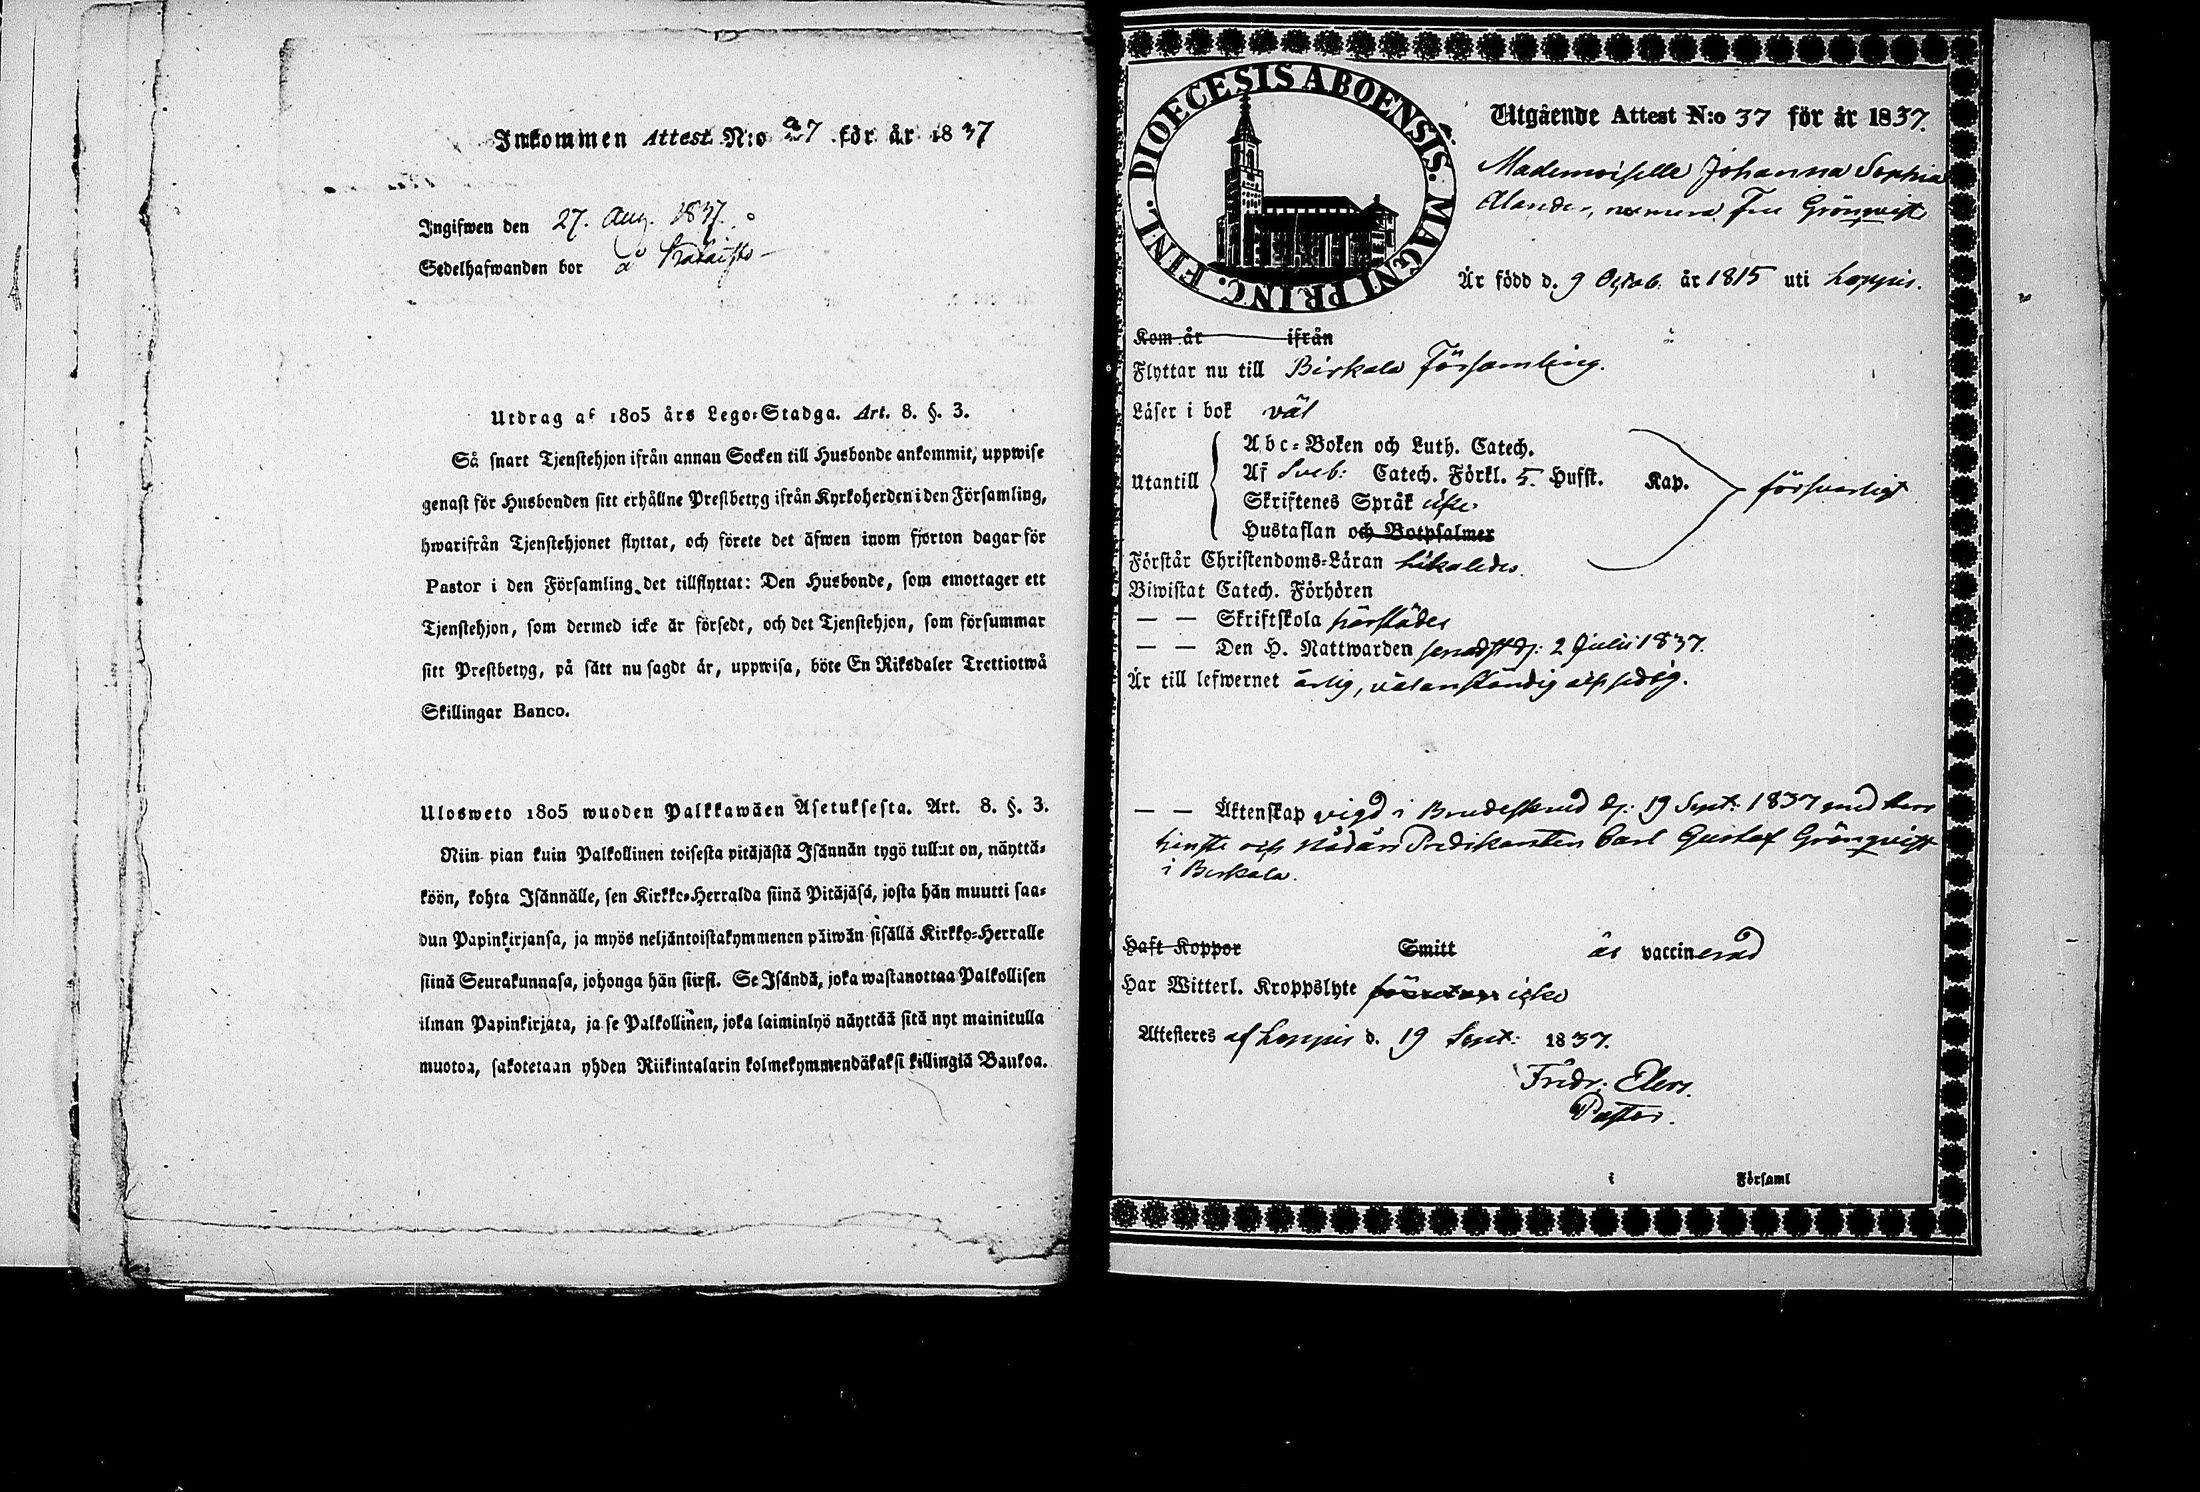 Inkommen Attest N:o 27 för år 1837
Ingifwen den 27. Aug. 1837.
Sedelhafwanden bor å
Utdrag af 1805 års Lego-Stadga. Art. 8. §. 3.
Så snart Tjenstehjon ifrån annan Socken till Husbonde ankommit, uppwise
genast för Husbonden sitt erhållne Prestbetyg ifrån Kyrkoherden i den Församling,
hwarifrån Tjenstehjonet flyttat, och förete det äfwen inom fjorton dagar för
Pastor i den Församling det tillflyttat: Den Husbonde, som emottager ett
Tjenstehjon, som dermed icke är försedt, och det Tjenstehjon, som försummar
sitt Prestbetyg, på sätt nu sagdt är, uppwisa, böte En Riksdaler Trettiotwå
Skillingar Banco.
Ulosweto 1805 wuoden Palkkawäen Asetuksesta. Art. 8. §. 3.
Niin pian kuin Palkollinen toisesta pitäjästä Isännän tygö tullut on, näyttä-
köön, kohta Isännälle, sen Kirkko-Herralda siinä Pitäjäsä, josta hän muutti saa-
dun Papinkirjansa, ja myös neljäntoistakymmenen päiwän sisällä Kirkko-Herralle
siinä Seurakunnasa, johonga hän siirsi. Se Isändä, joka wastanottaa Palkollisen
ilman Papinkirjata, ja se Palkollinen, joka laiminlyö näyttää sitä nyt mainitulla
muotoa, sakotetaan yhden Riikintalarin kolmekymmendäkaksi killingiä Bankoa.
DIOECESIS ABOENSIS. MAGNI PRINC. FINL.
Utgående Attest N:o 37 för år 1837.
Mademoiselle Johanna Sophia
Alander, numera Fru Grönqvist
Är född d. 9 Octob. år 1815 uti Loppis.
Kom år ifrån
Flyttar nu till Birkala Församling.
Läser i bok väl
Utantill
Abc-Boken och Luth. Catech.
Af Sveb: Catech. Förkl. 5. Hufst. Kap. försvarligt
Skriftenes Språk
Hustaflan och Botpsalmer
Förstår Christendoms-Läran likaledes.
Biwistat Catech. Förhören
— — Skriftskola härstädes
— — Den H. Nattwarden senast d: 2 Julii 1837.
Är till lefwernet ärlig, välanständig och sedig.
— — Äktenskap vigd i Brudestuud d: 19 Sept: 1837 med
och Nådårs Predikanten Carl Gustaf Grönqvist
i Birkala.
Haft Koppor Smitt är vaccinerad
Har Witterl. Kroppslyte icke
Attesteres af Loppis d. 19 Sept: 1837.
Fredr. Elers.
Pastor.
i Församl